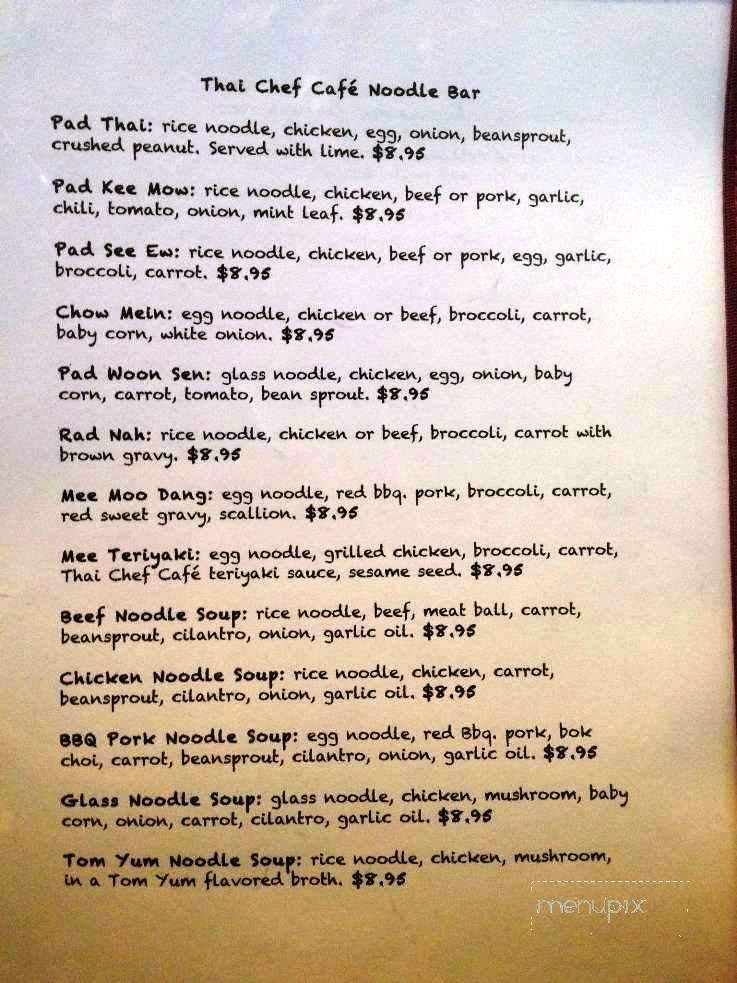 Thai Chef Café Noodle Bar
Pad Thai: rice noodle, chicken, egg, onion, beansprout,
crushed peanut. Served with lime. $8.95
Pad Kee Mow: rice noodle, chicken, beef or pork, garlic,
chili, tomato, onion, mint leaf. $8.95
Pad See Ew: rice noodle, chicken, beef or pork, egg, garlic,
broccoli, carrot. $8.95
Chow Mein: egg noodle, chicken or beef, broccoli, carrot,
baby corn, white onion. $8.95
Pad Woon Sen: glass noodle, chicken, egg, onion, baby
corn, carrot, tomato, bean sprout. $8.95
Rad Nah: rice noodle, chicken or beef, broccoli, carrot with
brown gravy. $8.95
Mee Moo Dang: egg noodle, red bbq. pork, broccoli, carrot,
red sweet gravy, scallion. $8.95
Mee Teriyaki: egg noodle, grilled chicken, broccoli, carrot,
Thai Chef Café teriyaki sauce, sesame seed. $8.95
Beef Noodle Soup: rice noodle, beef, meat ball, carrot,
beansprout, cilantro, onion, garlic oil. $8.95
Chicken Noodle Soup: rice noodle, chicken, carrot,
beansprout, cilantro, onion, garlic oil. $8.95
BBQ Pork Noodle Soup: egg noodle, red Bbq. pork, bok
choi, carrot, beansprout, cilantro, onion, garlic oil. $8.95
Glass Noodle Soup: glass noodle, chicken, mushroom, baby
corn, onion, carrot, cilantro, garlic oil. $8.95
Tom Yum Noodle Soup: rice noodle, chicken, mushroom,
in a Tom Yum flavored broth. $8.95
menupix